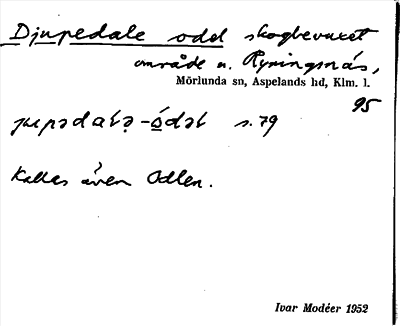 Djupedale odd skogbevuxet
område u. Ryningsnäs,
Mörlunda sn, Aspelands hd, Klm. l.
95
s. 79
Kallas även Odlen.
Ivar Modéer 1952